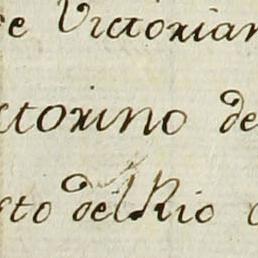 e Victorian
ctorino de
sto del Rio